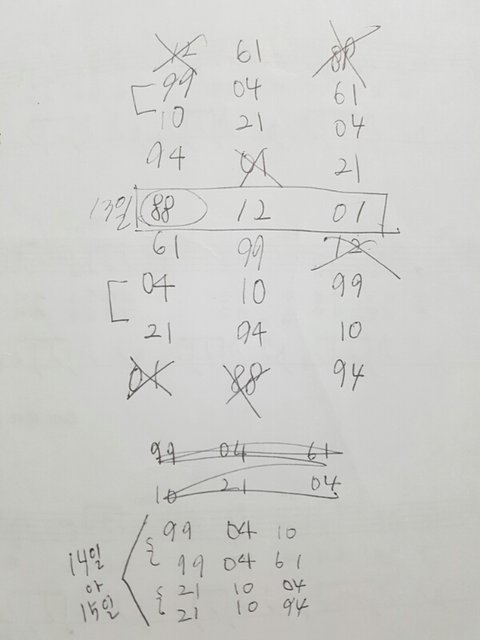 12 61 88
99 04 61
10 21 04
94 01 21
13일 88 12 01
61 99 12
04 10 99
21 94 10
01 88 94
99 04 61
10 21 04
99 04 10
14일 99 04 61
아 21 10 04
15일 21 10 94